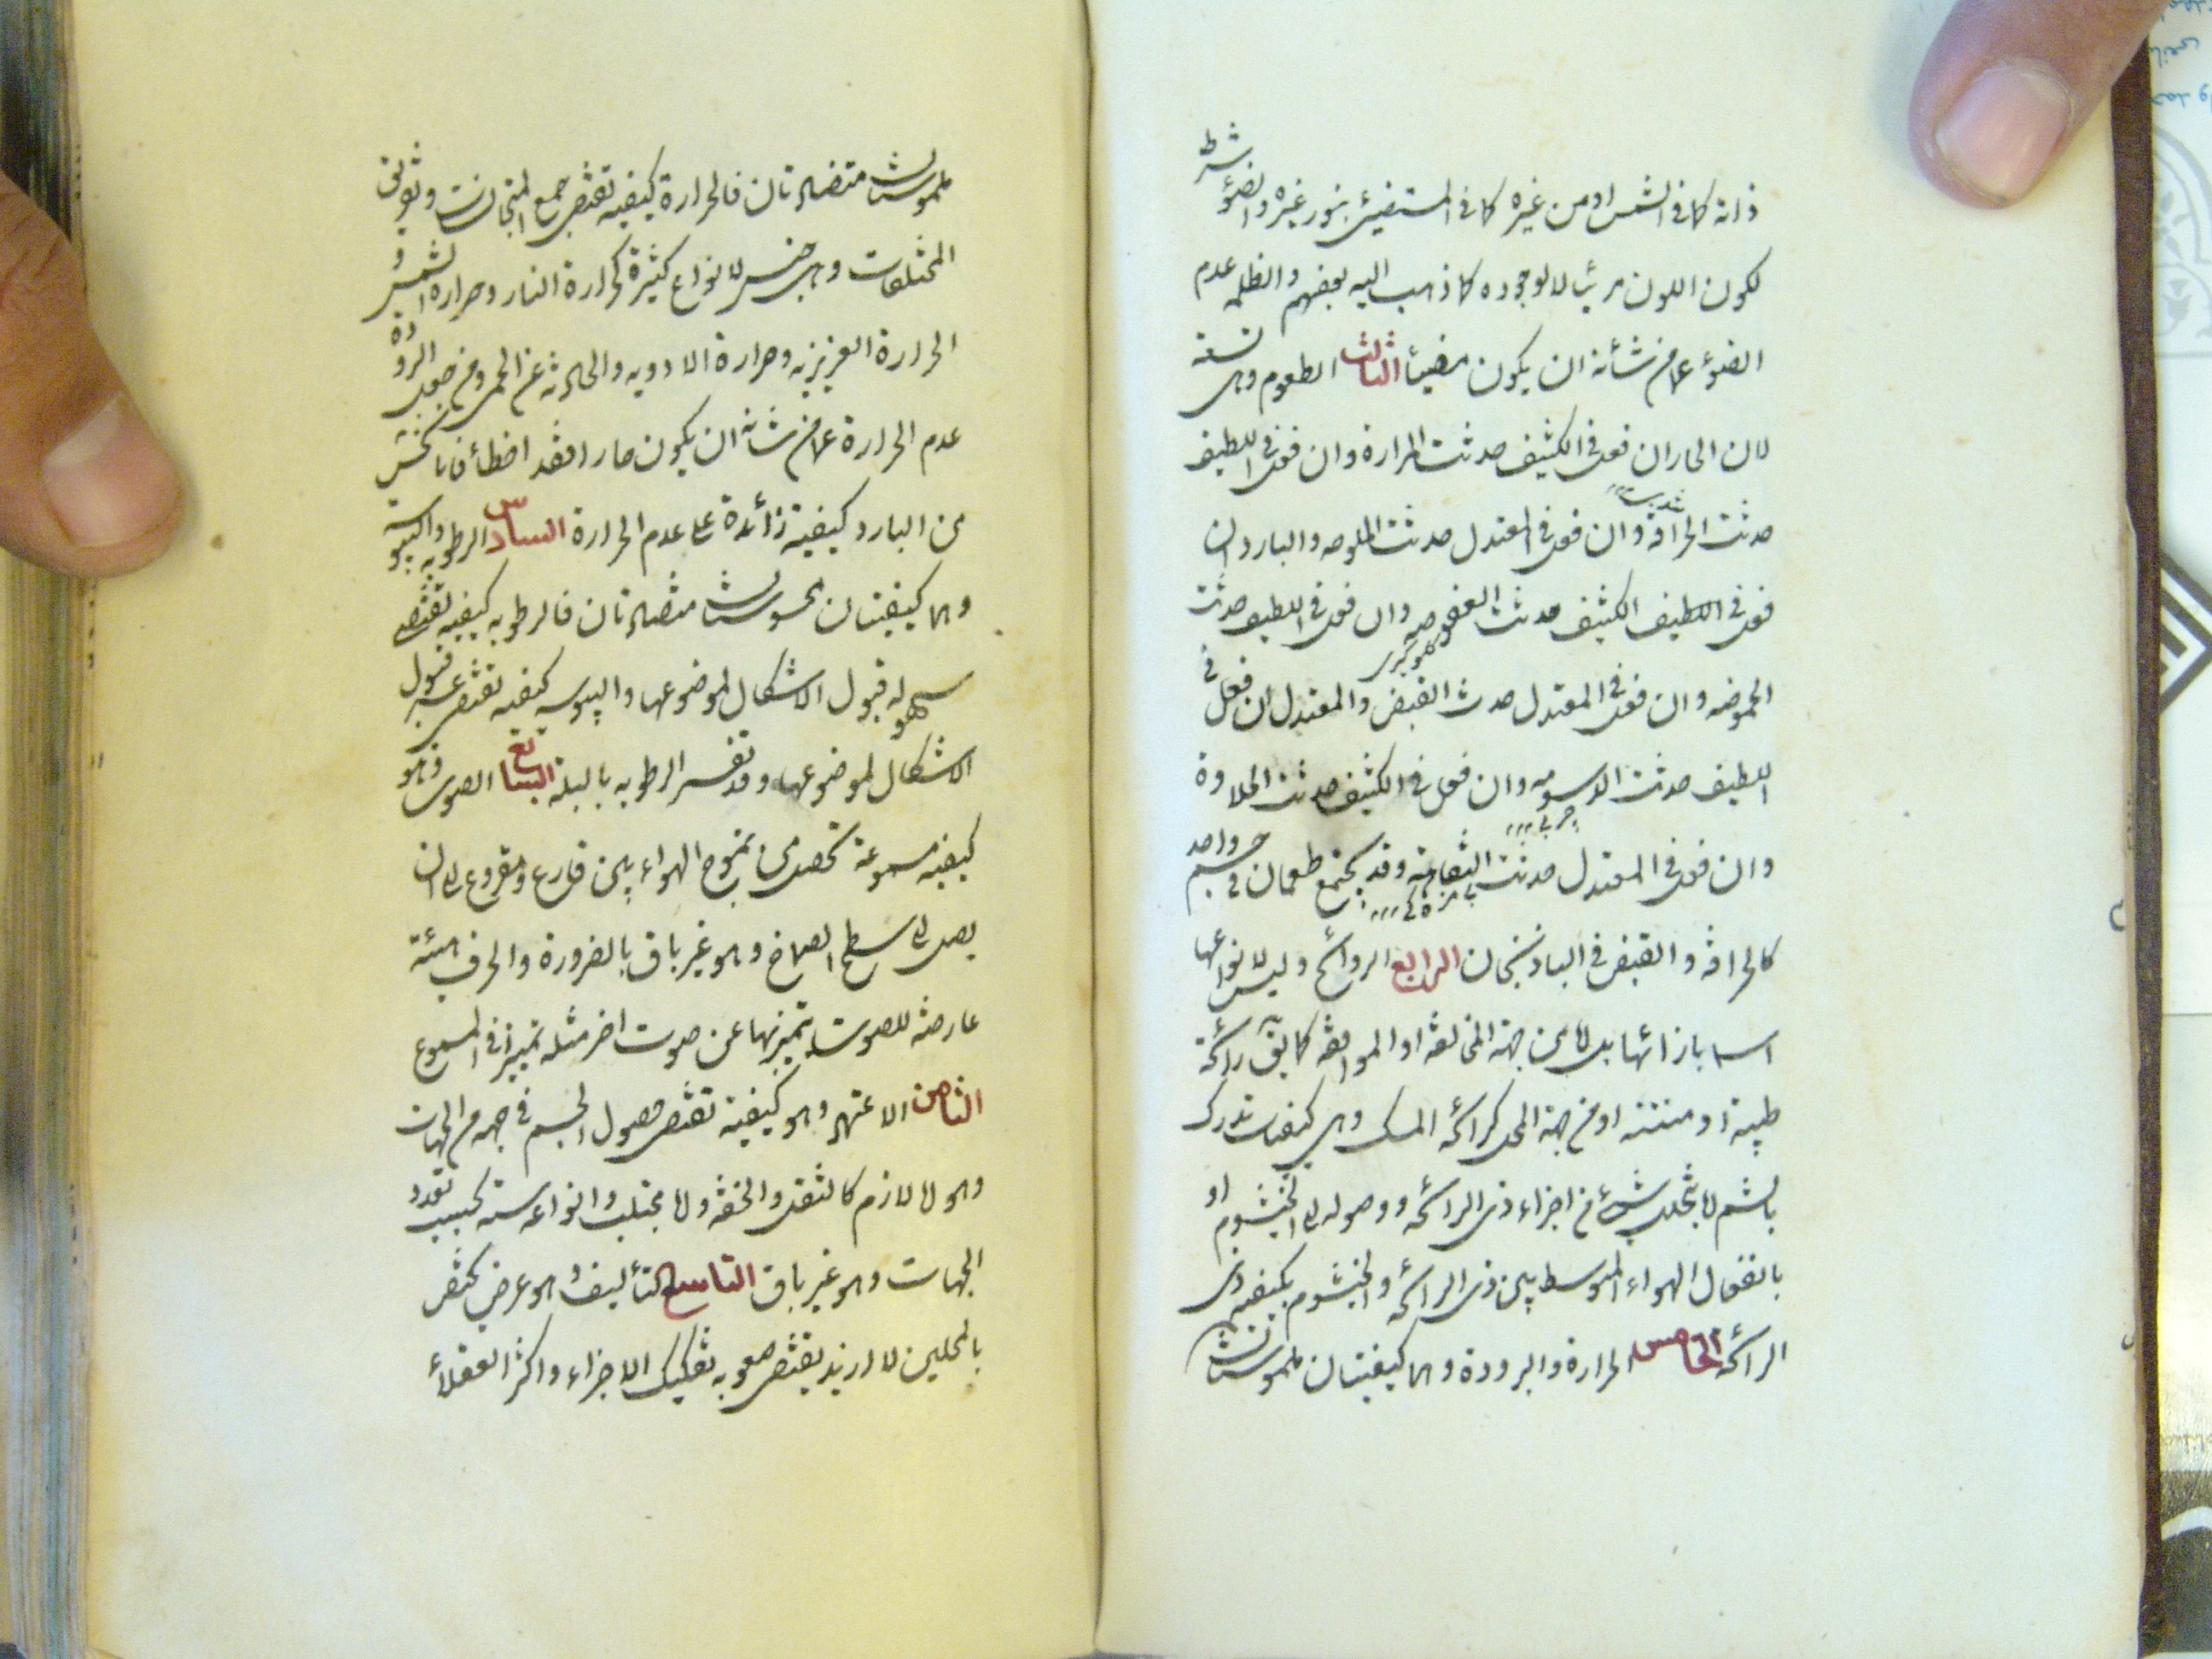 ذاته كما فى الشمس او من غيره كما فى المستضيئ بنور غيره والضوؤ شرط
لكون اللون مرئيا لا لوجوده كما ذهب اليه بعضهم والظلمه عدم
الضوؤ عما من شأنه ان يكون مضيئا الثالث الطعوم وهى تسعة
لان الحار ان فعل فى الكثيف حدثت المرارة وان فعل فى اللطيف
حدثت الحرافة وان فعل فى المعتدل حدثت الملوحه والبارد ان
فعل فى اللطيف الكثيف حدثت العفوصه وان فعل فى اللطيف حدثت
الحموضه وان فعل فى المعتدل حدث القبض والمعتدل ان فعل فى
اللطيف حدثت الدسومه وان فعل فى الكثيف حدثت الحلاوة
وان فعل فى المعتدل حدثت التفاهة وقد يجتمع طعمان فى جسم واحد
كالحرافه والقبض فى الباذنجان الرابع الروائح وليس لانواعها
اسماء بازائها بل لها من جهة المخالفه او الموافقه كما يق رائحة
طيبة او منتنه او من جهة المحل كرائحه المسك وهى كيفيات تدرك
بالشم لا بتحلل شئ من اجزاء ذى الرائحه ووصوله الى الخيشوم او
بانفعال الهواء المتوسط بين ذى الرائحه والخيشوم بكيفيه ذى
الرائحة الخامس الحرارة والبرودة وهما كيفيتان ملموستان
ملموستان متضادتان فالحرارة كيفيه تقتضى جمع المتجانسات وتفريق
المختلفات وهى جنس لانواع كثيرة كحرارة النار وحرارة الشمس و
الحرارة الغريزيه وحرارة الادويه والحادثه عن الحمى ومن جعل البرودة
عدم الحرارة عما من شأنه ان يكون حارا فقد اخطأ فانا نحس
من البارد كيفية زائدة على عدم الحرارة السادس الرطوبه واليبوسة
وهما كيفيتان محسوستان متضادتان فالرطوبه كيفيه تقتضى
سهوله قبول الاشكال لموضوعها واليبوسه كيفيه تقتضى عسر قبول
الاشكال لموضوعها وقد تفسر الرطوبه بالبلة السابع الصوت وهو
كيفيه مسموعة تحصل من تموج الهواء بين قارع ومقروع الى ان
يصل الى سطح الصماخ وهو غير باق بالضرورة والحرف هيئة
عارضه للصوت يتميز بها عن صوت اخر مثله تميزا فى المسموع
الثامن الاعتماد وهو كيفية تقتضى حصول الجسم فى جهه من الجهات
وهو اما لازم كالثقل والخفه واما مجتلب وانواعه ستة بحسب تعدد
الجهات وهو غير باق التاسع التأليف وهو عرض يختص
بالمحلين لا ازيد يقتضى صعوبه تفكيك الاجزاء واكثر العقلاء